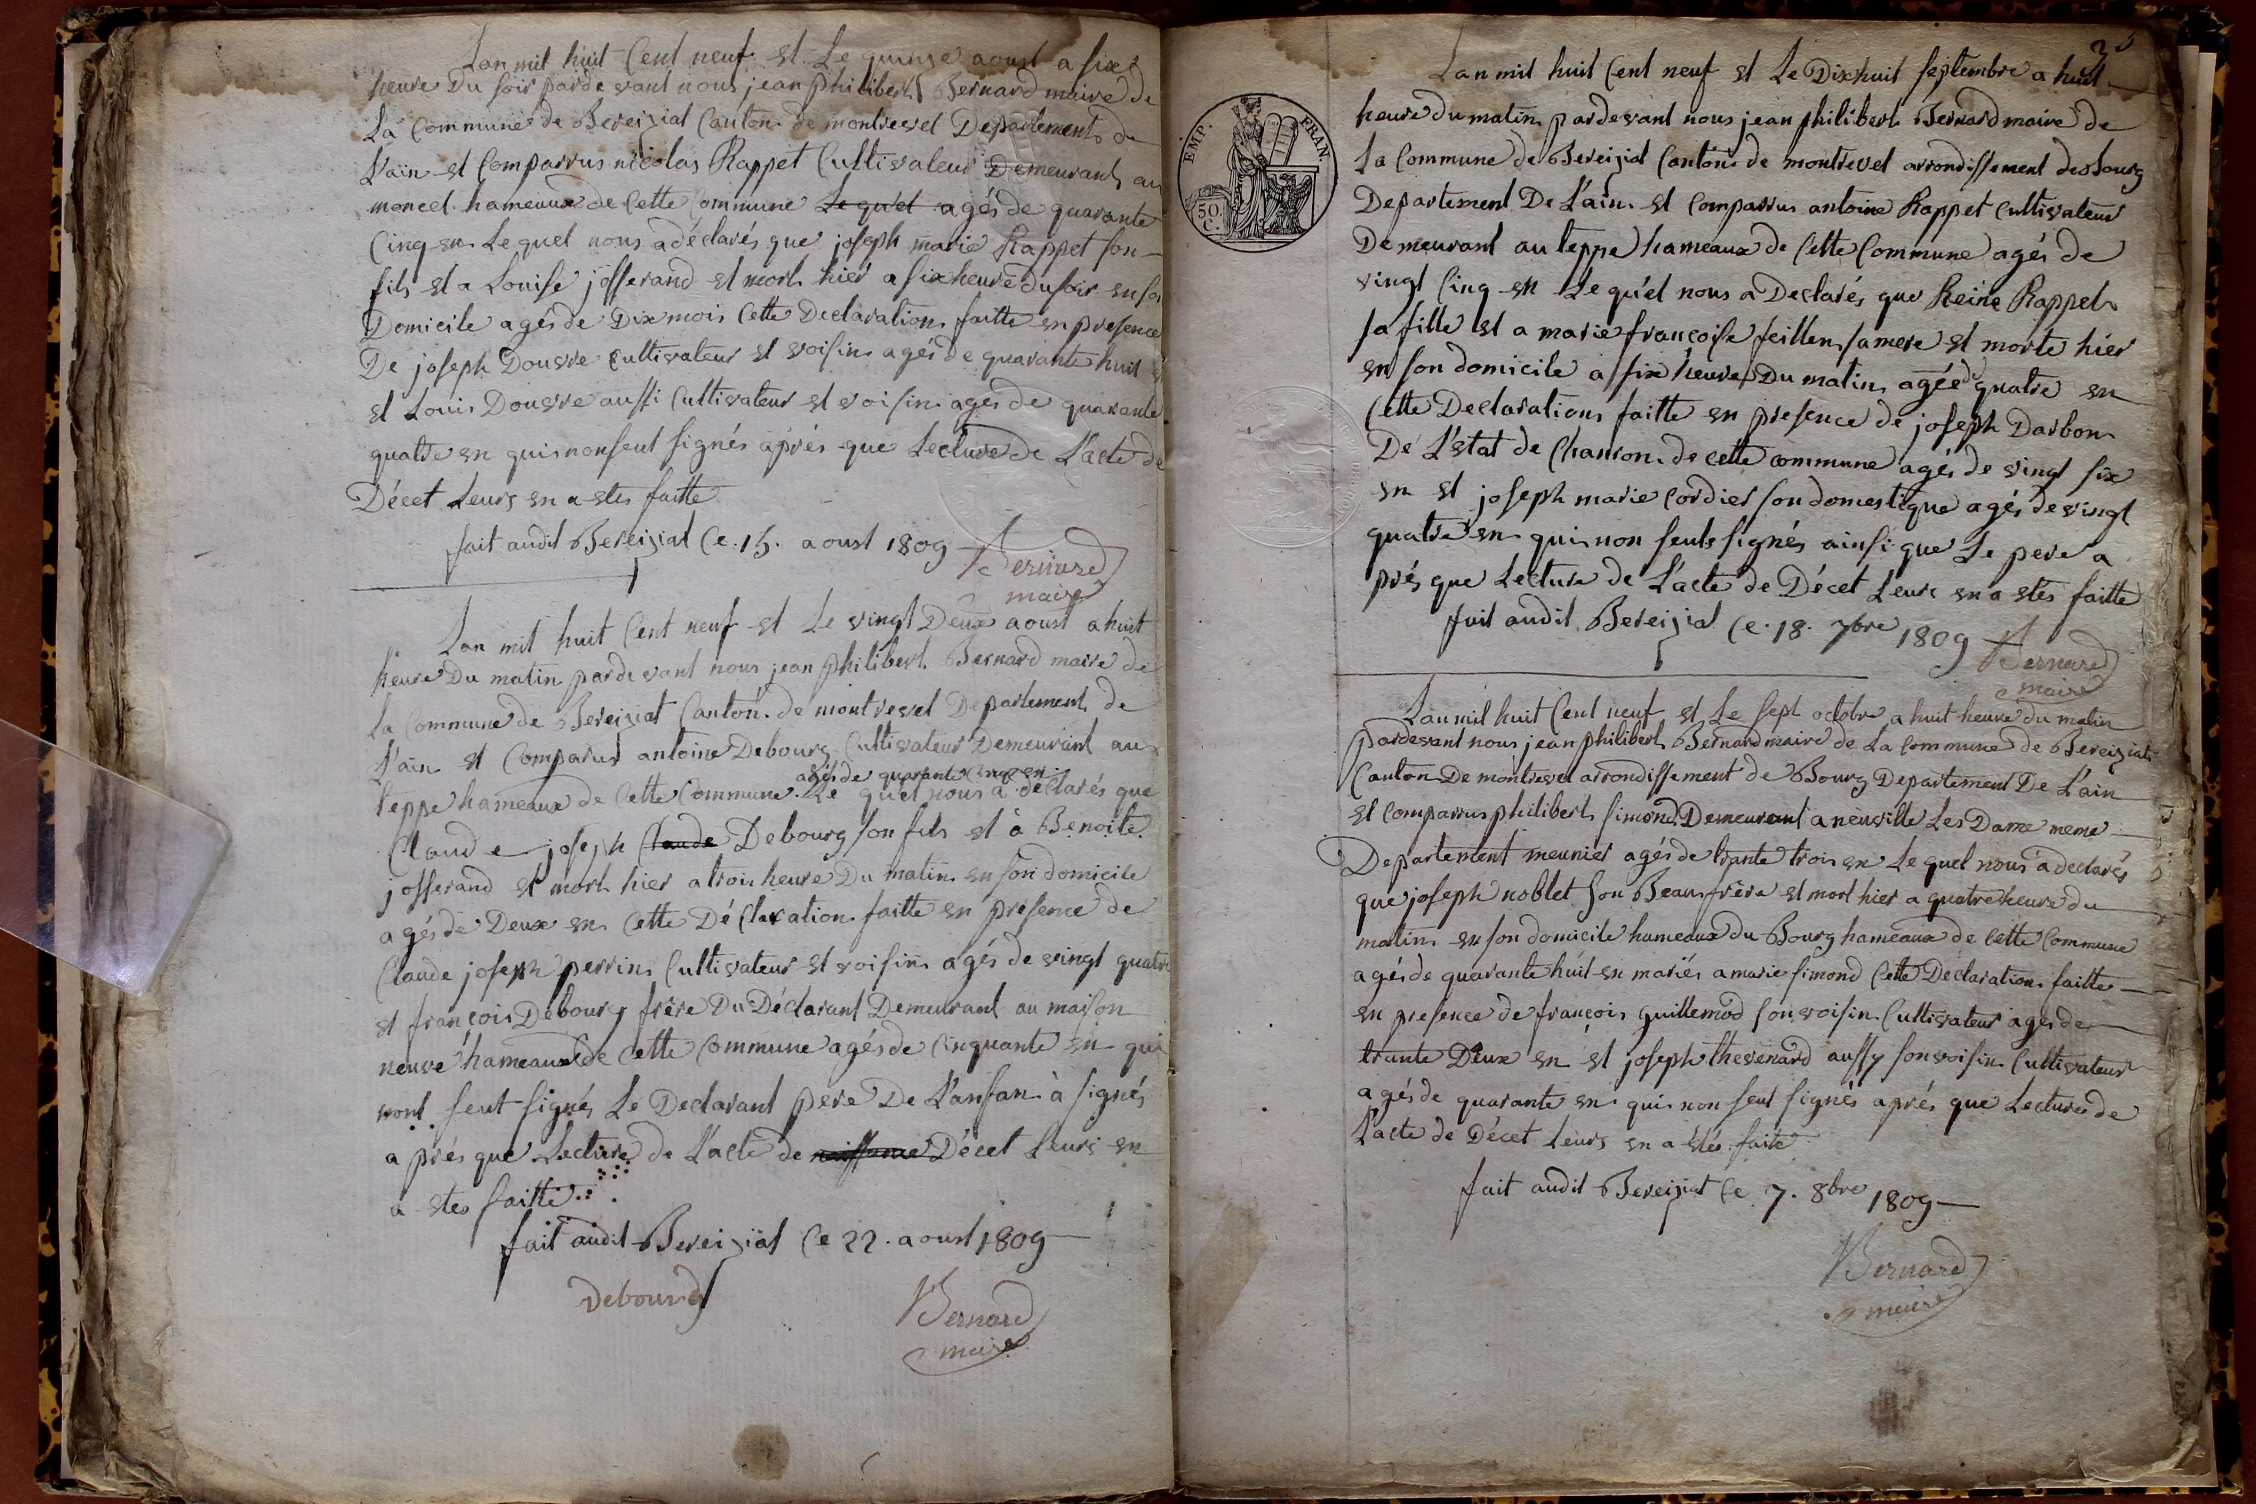 Lan mil huit Cent neuf et Le quinze aoust a six
heure Du soir parde vant nous jean philibert Bernard maire de
La Commune de Bereiziat Canton de montrevel Departement de
L'ain et Comparrus nicolas Rappet Cultivateur Demeurant au
moncel hameaux de Cette Commune Le quel agés de quarante
Cinq en Le quel nous a déclarés que joseph marie Rappet son
fils et a Louise josserand et mort hier a six heure du soir en son
Domicile agés de Dix mois Cette Declaration faitte en presence
De joseph Douvre Cultivateur et voisin agés de quarante huit
et Louis Douvre aussi Cultivateur et voisin agés de quarante
quatre en qui nonseut signés aprés que Lecture de L'acte de
Décet Leurs en a etes faitte
fait audit Bereiziat Ce 15. aoust 1809
Bernard
maire
Lan mil huit Cent neuf et Le vingt Deux aoust a huit
heure Du matin parde vant nous jean philibert Bernard maire de
la Commune de Bereiziat Canton de montrevel Departement de
L'ain et Comparus antoine Debourg Cultivateur Demeurant au
agés de quarante Cinq en
teppe hameaux de Cette Commune Le quel nous a declarés que
Claude joseph Claude Debourg son fils et à Benoite
josserand et mort hier a trois heure Du matin en son domicile
agés de Deux en Cette Déclaration faitte en présence de
Claude joseph perrin Cultivateur et voisin agés de vingt quatre
et françois Debourg frère Du Déclarant Demeurant au maison
neuve hameaux de Cette Commune agés de Cinquante en qui
nont seut signés Le Declarant pere De L'anfan à signés
a prés que Lecture de L'acte de naissance Décet Leurs en
a etes faitte
fait audit Bereiziat Ce 22. aoust 1809
Debourg
Bernard
maire
EMP. FRAN.
50.
C.
Lan mil huit Cent neuf et Le Dixhuit septembre a huit
heure du matin pardevant nous jean philibert Bernard maire de
La Commune de Bereiziat Canton de montrevel arrondissement de Bourg
Departement De L'ain et Comparrus antoine Rappet Cultivateur
Demeurant au teppe hameaux de Cette Commune agés de
vingt Cinq en Le quel nous a Declarés que Reine Rappet
sa fille et a marie françoise feillen sa mere et morte hier
en son domicile a six heure Du matin agée de quatre en
Cette Declaration faitte en presence de joseph Darbon
De L'état de Charron de cette commune agés de vingt six
en et joseph marie Cordier son domestique agés de vingt
quatre en qui non seut signés ainsi que Le pere a
prés que Lecture de L'acte de Décet Leurs en a etés faitte
fait audit Bereiziat Ce 18. 7bre 1809
Bernard
maire
Lan mil huit Cent neuf et Le sept octobre a huit heure du matin
pardevant nous jean philibert Bernard maire de La Commune de Bereiziat
Canton De montrevel arrondissement de Bourg Departement De L'ain
et comparrus philibert simond Demeurant a neuville Les Dame meme
Departement meunier agés de trante trois en Le quel nous a declarés
que joseph noblet son Beaufrère et mort hier a quatre heure du
matin en son domicile hameaux du Bourg hameaux de Cette Commune
agés de quarante huit en mariés a marie simond Cette Declaration faitte
en presence de françois guillemod son voisin Cultivateur agés de
trante Deux en et joseph thevenard aussy son voisin Cultivateur
agés de quarante en qui non seut signés aprés que Lecture de
L'acte de Décet Leurs en a étés faite
fait audit Bereiziat Ce 7. 8bre 1809
Bernard
maire